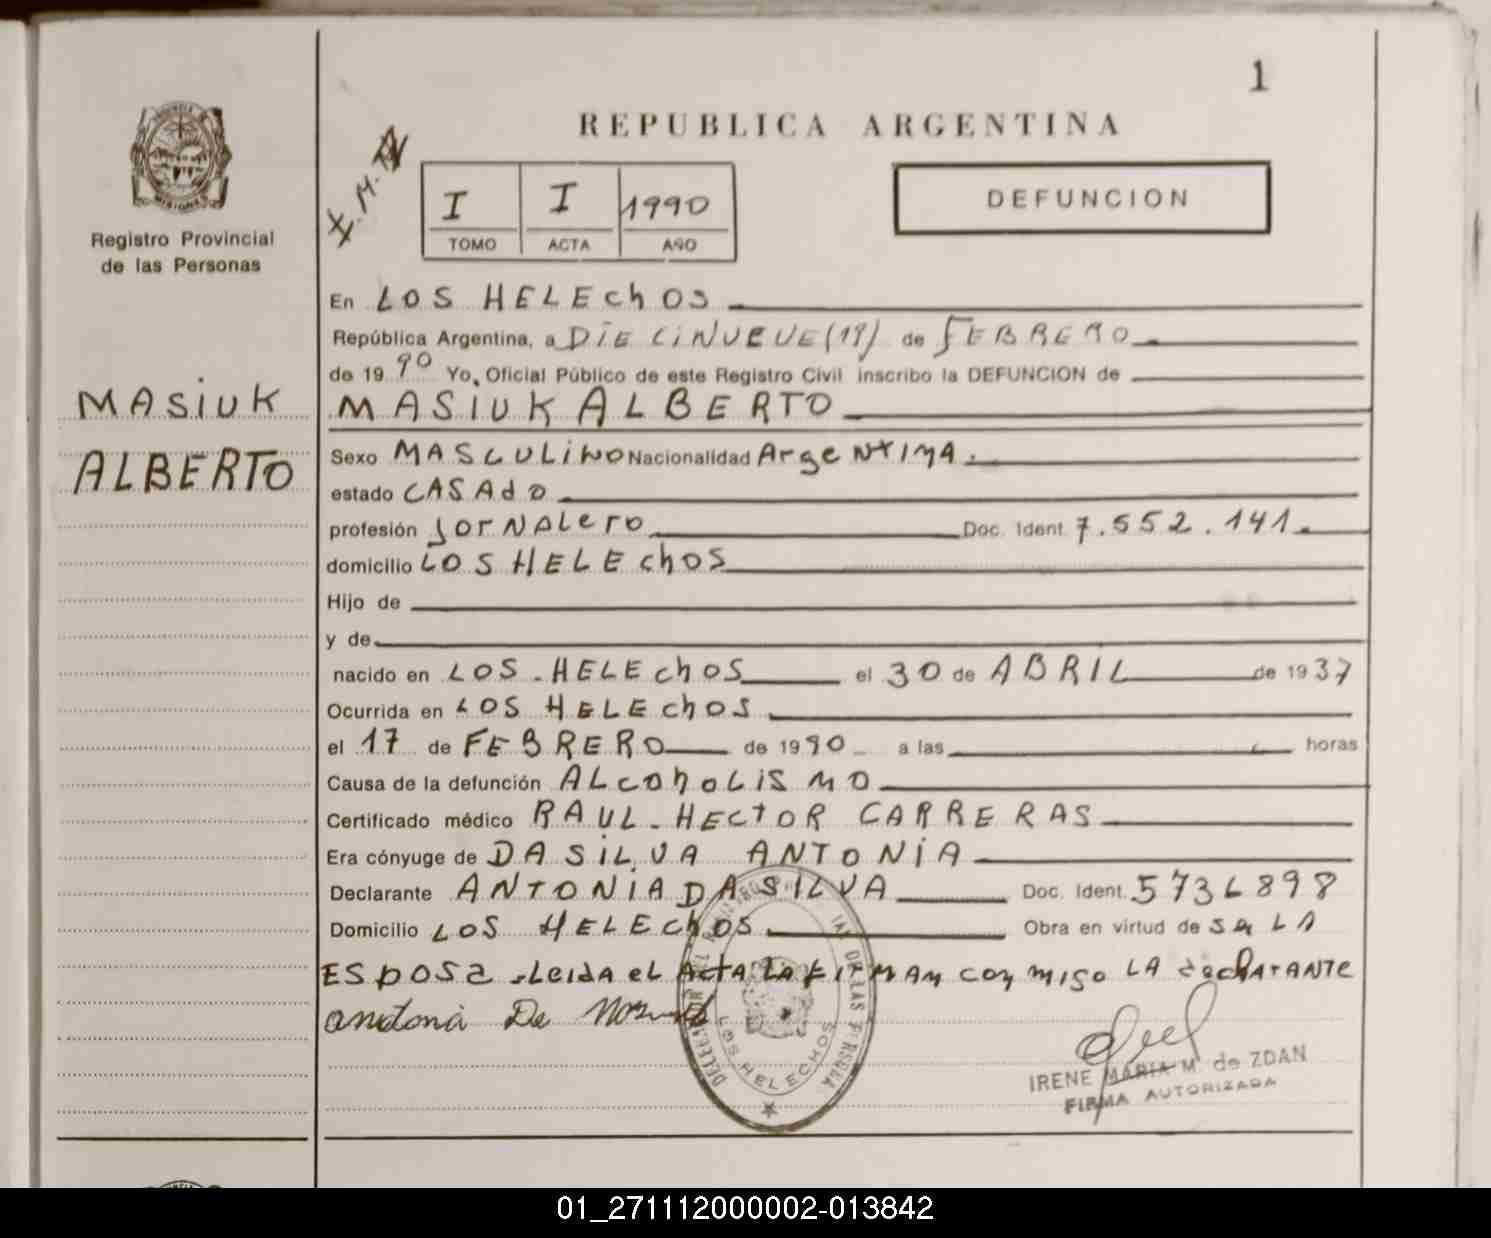 1
REPUBLICA ARGENTINA
I I 1990
TOMO ACTA AÑO
DEFUNCION
Registro Provincial
de las Personas
MASIUK
ALBERTO
En LOS HELEchOS
República Argentina, a DIECINUEVE (19) de FEBRERO
de 1990 Yo, Oficial Público de este Registro Civil inscribo la DEFUNCION de
MASIUK ALBERTO
Sexo MASCULINO Nacionalidad ArgeNtINA.
estado CASAdO
profesión JorNALero Doc. Ident. 7.552.141.
domicilio LOS HELEchOS
Hijo de
y de
nacido en LOS-HELEchOS el 30 de ABRIL de 1937
Ocurrida en LOS HELEchOS
el 17 de FEBRERO de 1990 a las horas
Causa de la defunción ALcohoLISMO
Certificado médico RAUL-HECTOR CARRERAS
Era cónyuge de DASILVA ANTONIA
Declarante ANTONIA DASILVA Doc. Ident. 5736898
Domicilio LOS HELEchOS Obra en virtud de Ser LA
ESposa-Leida el ActA LA FIrMAN conmigo LA decLArANTE
LOS HELECHOS
IRENE MARIA M. de ZDAN
FIRMA AUTORIZADA
01_271112000002-013842